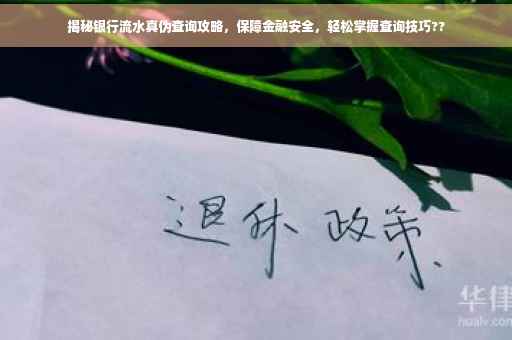 揭秘银行流水真伪查询攻略，保障金融安全，轻松掌握查询技巧??
退休 政策
华律
hualv.com